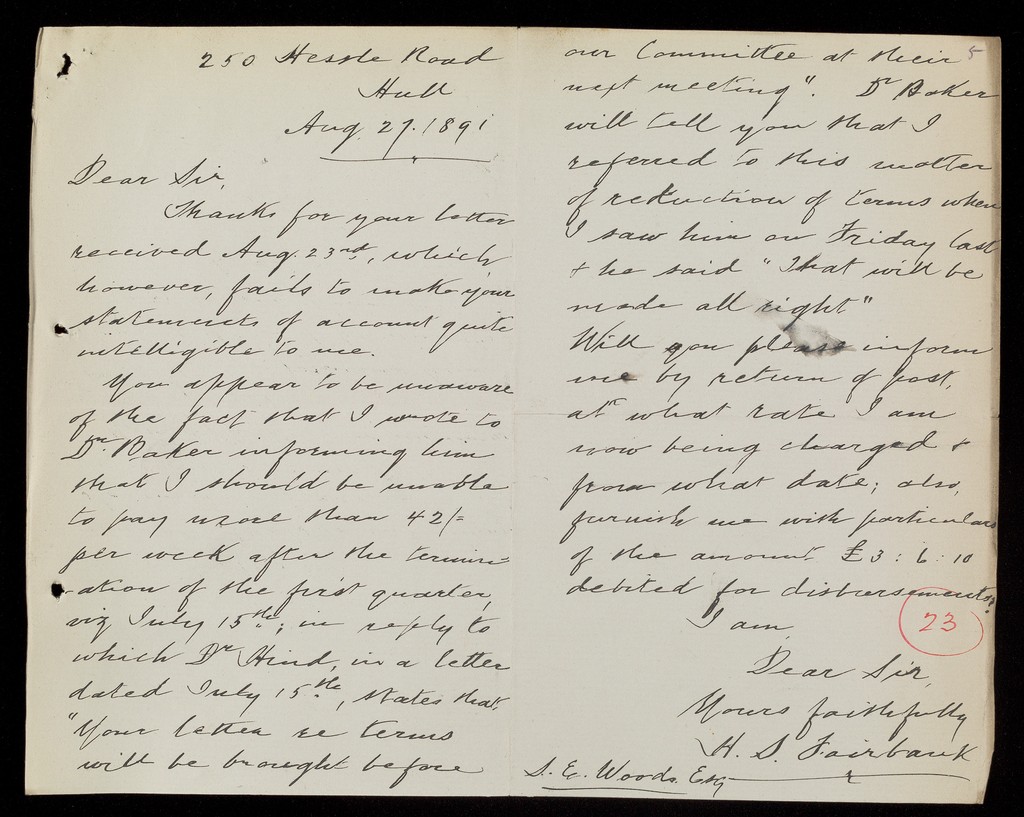 250 Hessle Road
Hull
Aug. 27. 1891
Dear Sir,
Thanks for your letter
received Aug. 23rd, which,
however, fails to make your
statements of account quite
intelligible to me.
You appear to be unaware
of the fact that I wrote to
Dr Baker informing him
that I should be unable
to pay more than 42/=
per week after the termin=
ation of the first quarter,
viz July 15th; in reply to
which Dr Hind, in a letter
dated July 15th, states that
"Your letter re terms
will be brought before
our Committee at their
next meeting". Dr Baker
will tell you that I
referred to this matter
of reduction of terms when
I saw him on Friday last
& he said "That will be
made all right"
Will you please inform
me by return of post,
at what rate I am
now being charged &
from what date; also,
furnish me with particulars
of the amount £3:6:10
debited for disbursements.
I am,
Dear Sir,
Yours faithfully
H. S. Fairbank
S. E. Woods Esq
5
23